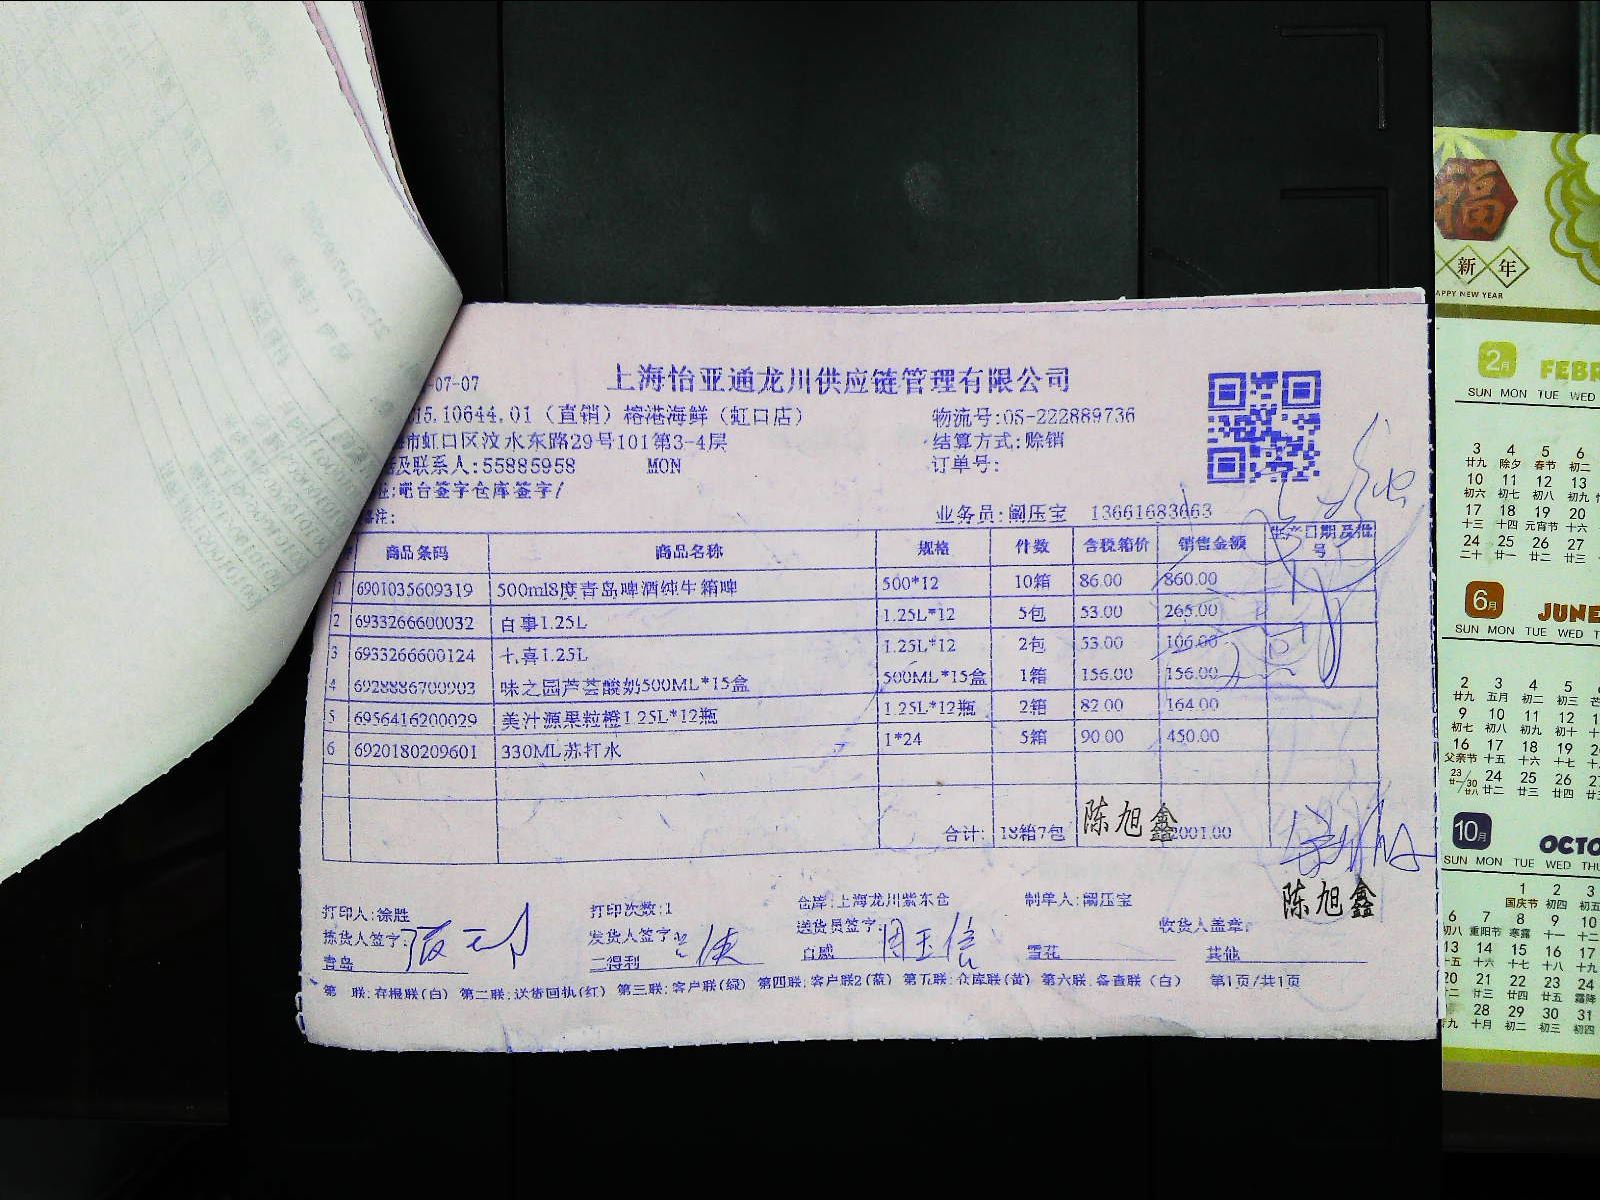 -07-07
上海怡亚通龙川供应链管理有限公司
15.10644.01（直销）榕港海鲜（虹口店）
物流号:OS-222889736
市虹口区汶水东路29号101第3-4层
结算方式:赊销
及联系人:55885958 MON
订单号:
吧台签字仓库签字/
备注:
业务员:阚压宝 13661683663
商品条码 商品名称 规格 件数 含税箱价 销售金额 生产日期及批号
1 6901035609319 500ml8度青岛啤酒纯生箱啤 500*12 10箱 86.00 860.00
2 6933266600032 百事1.25L 1.25L*12 5包 53.00 265.00
3 6933266600124 七喜1.25L 1.25L*12 2包 53.00 106.00
4 6928886700903 味之园芦荟酸奶500ML*15盒 500ML*15盒 1箱 156.00 156.00
5 6956416200029 美汁源果粒橙1.25L*12瓶 1.25L*12瓶 2箱 82.00 164.00
6 6920180209601 330ML苏打水 1*24 5箱 90.00 450.00
合计: 18箱7包 陈旭鑫 2001.00
陈旭鑫
打印人:徐胜 打印次数:1 仓库:上海龙川紫东仓 制单人:阚压宝
拣货人签字: 发货人签字: 送货员签字: 周玉信 收货人盖章:
青岛 三得利 百威 雪花 其他
第一联:存根联(白) 第二联:送货回执(红) 第三联:客户联(绿) 第四联:客户联2(蓝) 第五联:仓库联(黄) 第六联:备查联（白） 第1页/共1页
福
新年
APPY NEW YEAR
2月 FEBR
SUN MON TUE WED
3 4 5 6
廿九 除夕 春节 初二
10 11 12 13
初六 初七 初八 初九
17 18 19 20
十三 十四 元宵节 十六
24 25 26 27
二十 廿一 廿二 廿三
6月 JUNE
SUN MON TUE WED T
2 3 4 5
廿九 五月 初二 初三
9 10 11 12
初七 初八 初九 初十
16 17 18 19
父亲节 十五 十六 十七
23/30 24 25 26
廿一/廿八 廿二 廿三 廿四
10月 OCTO
SUN MON TUE WED THU
1 2 3
国庆节 初四 初五
6 7 8 9 10
初八 重阳节 寒露 十一 十二
13 14 15 16 17
十五 十六 十七 十八 十九
20 21 22 23 24
廿二 廿三 廿四 廿五 霜降
28 29 30 31
十月 初二 初三 初四